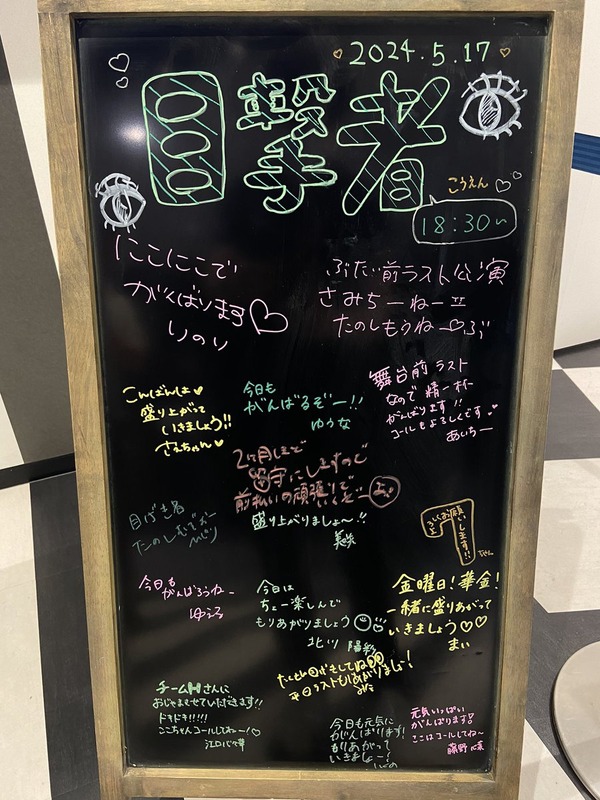 2024.5.17
目撃者
こうえん
18:30〜
にこにこで
がんばります♡
りのり
ぶたい前ラスト公演
さみちーねー
たのしもうねー♡
こんばんは♥
盛り上がって
いきましょう!!
さえちゃん♥
今日も
がんばるぞー!!
ゆうな
舞台前ラスト
なので精一杯
がんばります!!
コールもよろしくです
あいちー
2ヶ月ほど
留守にしますので
前払いの頑張りで
盛り上がりましょ〜!!
目げき者
たのしむでおー
よろしくお願いします!!
今日も
がんばろうねー
ゆうみ
今日は
ちょー楽しんで
もりあがりましょう
北川 陽彩
金曜日!華金!
一緒に盛りあがって
いきましょう♡♡
まい
平日ラストもりあがりましょー!
チームHさんに
おじゃまさせていただきます!!
ドキドキ!!!!!
ここちゃんコールしてねー!♡
江口心々華
今日も元気に
がんばります!
もりあがって
いきましょー!
元気いっぱい
がんばります!
ここはコールしてね〜
藤野 心葉